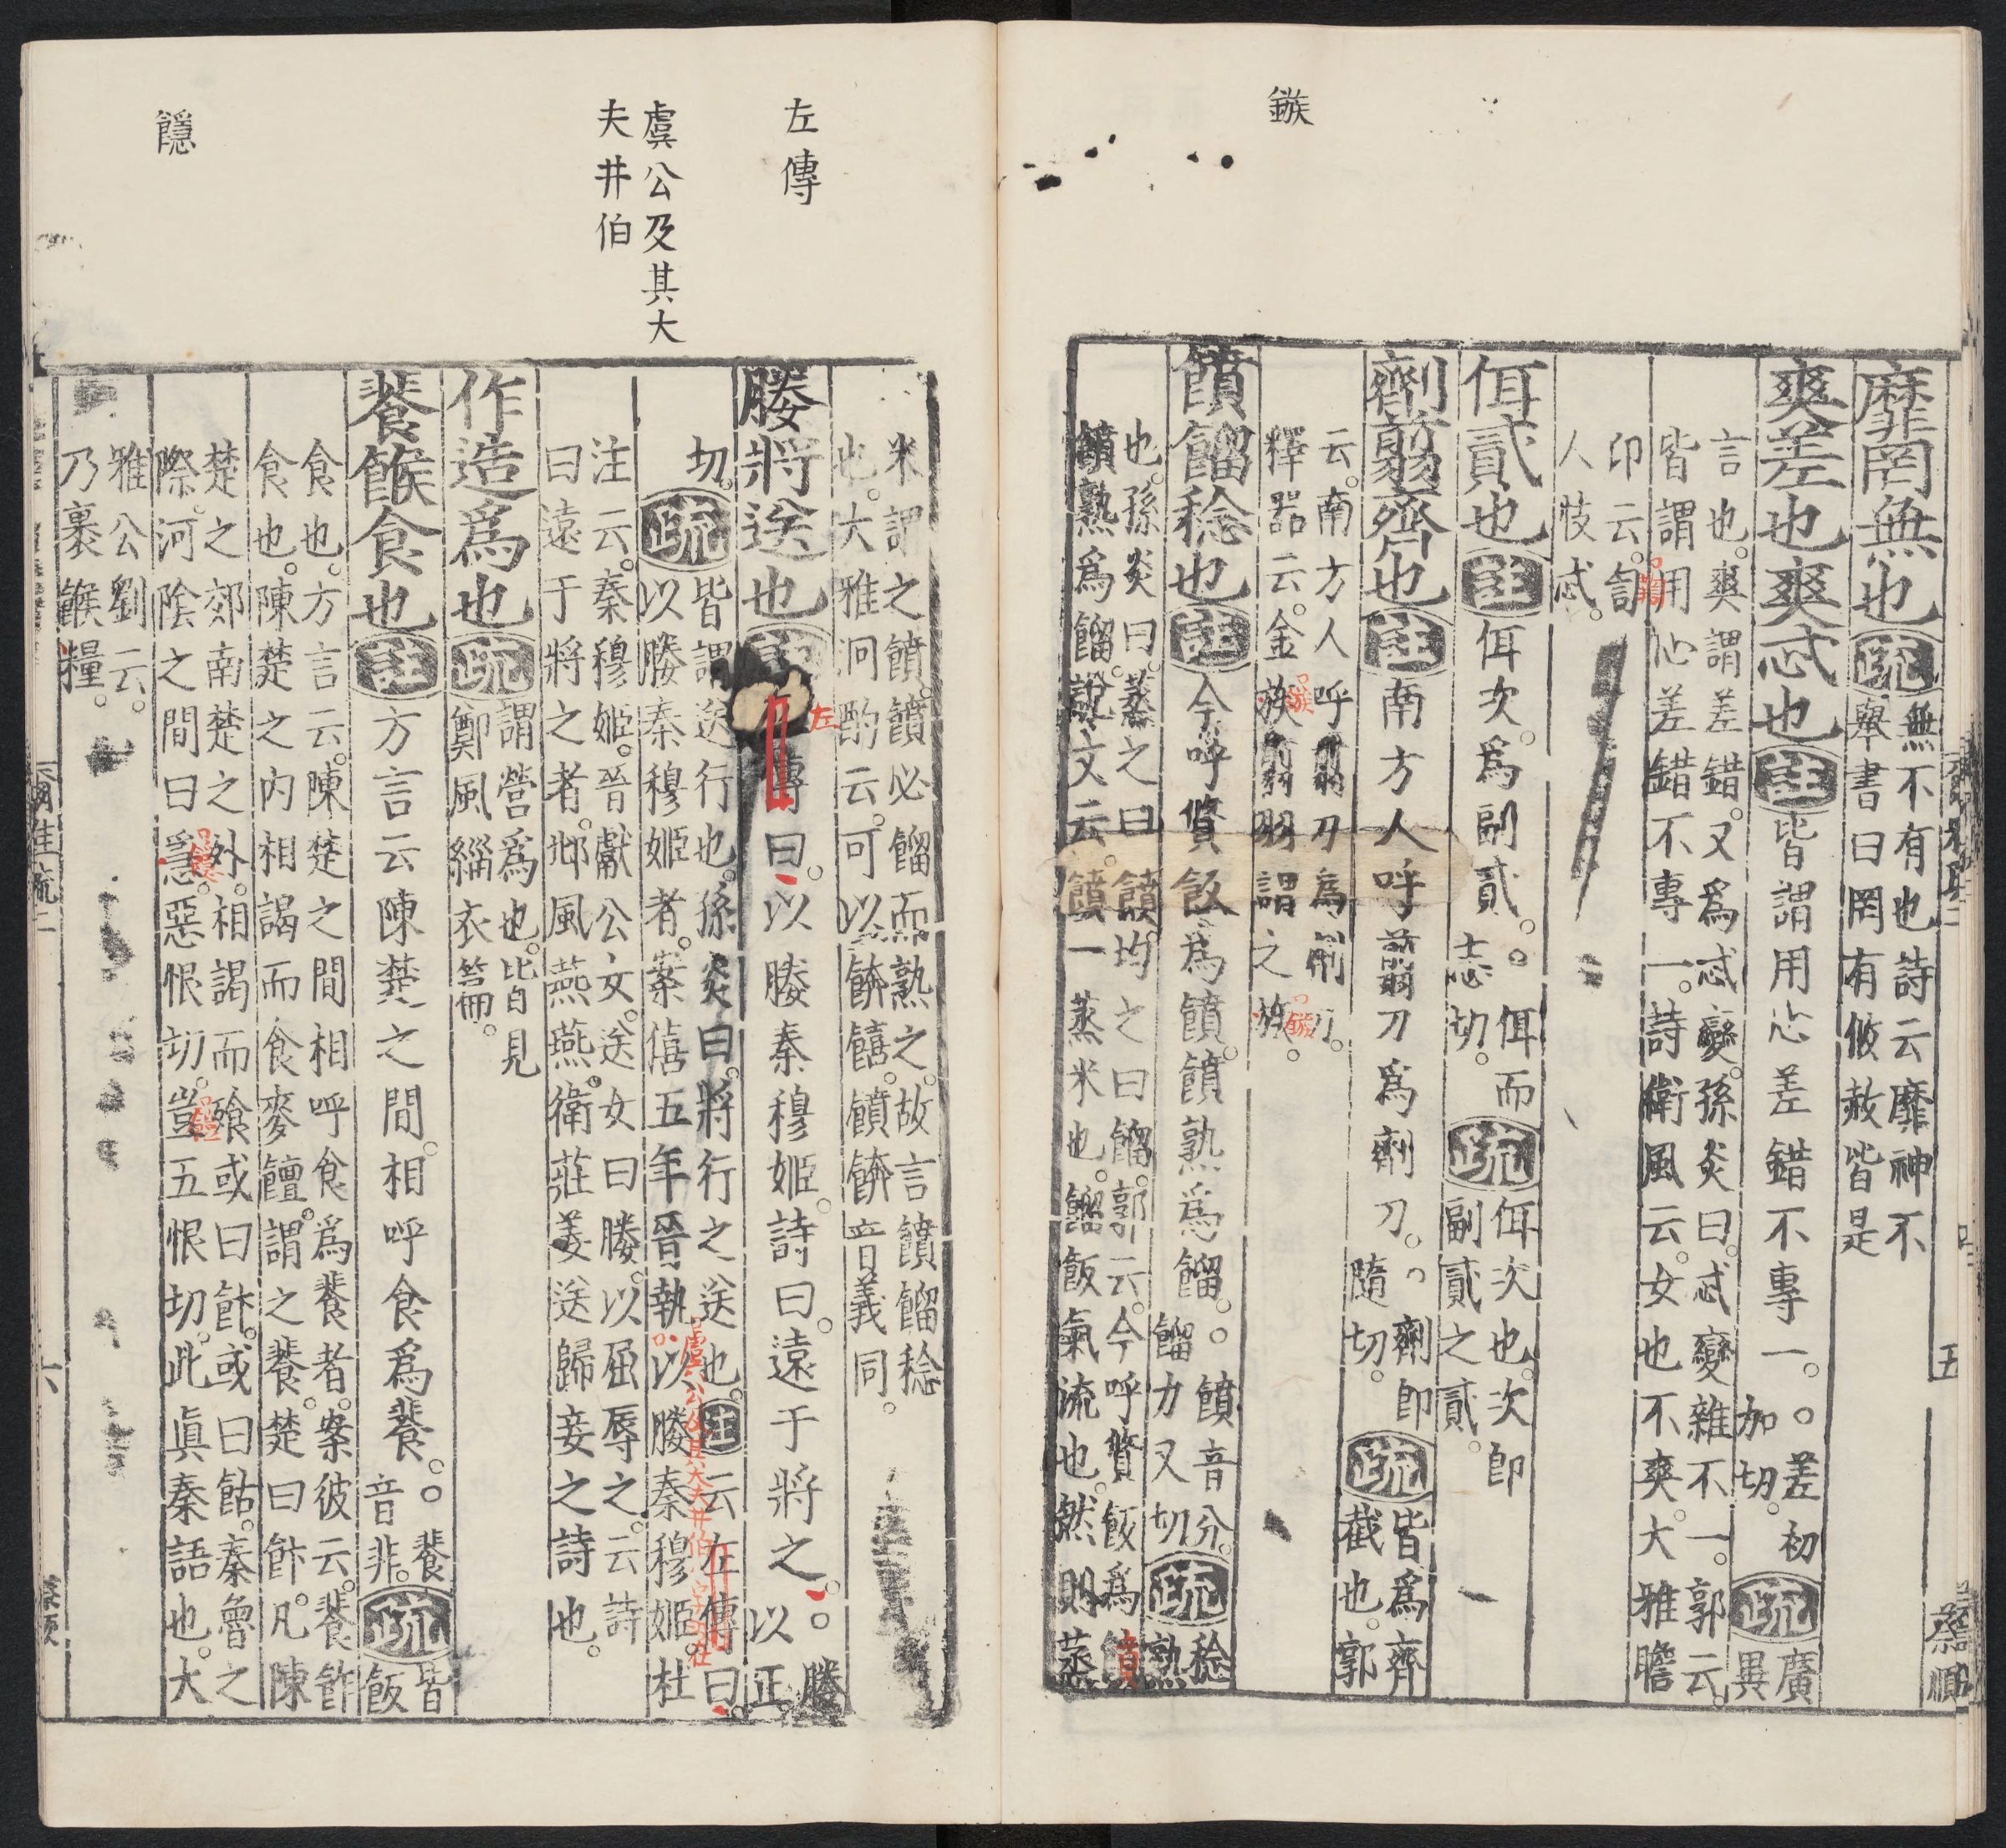 鏃
靡罔無也疏無不有也詩云靡神不
舉書曰罔有攸赦皆是
爽差也爽忒也註皆謂用心差錯不專一。○差初
加切。疏廣
異
言也。爽謂差錯。又爲忒變。孫炎曰。忒變雜不一。郭云。
皆謂用心差錯不專一。詩衛風云。女也不爽。大雅瞻
卬云。
人忮忒。
佴貳也註佴次。爲副貳。○佴而
志切。疏佴次也。次即
副貳之貳。
劑翦齊也註南方人呼翦刀爲劑刀。○劑即
隨切。疏皆爲齊
截也。郭
云。南方人呼翦刀爲劑刀。
釋器云。金
翦羽謂之
饙餾稔也註今呼䬸飯爲饙。饙熟爲餾。○饙音分。
餾力又切疏稔
熟
也。孫炎曰。蒸之曰饙。均之曰餾。郭云。今呼䬸飯爲
饙熟爲餾。說文云。饙一蒸米也。餾飯氣流也。然則蒸
五
蔡順
左傳
虞公及其大
夫井伯
䭡
米謂之饙。饙必餾而熟之。故言饙餾稔
也。大雅泂酌云。可以餴饎。饙餴音義同。
媵將送也
左
傳曰。以媵秦穆姬。詩曰。遠于將之。○媵
以正
切。疏皆謂送行也。孫炎曰。將行之送也。註云左傳曰。
以媵秦穆姬者。案僖五年晉執
以媵秦穆姬。杜
虞公及其大夫井伯
注云。秦穆姬。晉獻公女。送女曰媵。以屈辱之。云詩
曰遠于將之者。邶風燕燕。衛莊姜送歸妾之詩也。
作造爲也疏謂營爲也。皆見
鄭風緇衣篇。
餥餱食也註方言云陳楚之間。相呼食爲餥。○餥
音非。疏皆
飯
食也。方言云。陳楚之間相呼食爲餥者。案彼云。餥飵
食也。陳楚之內相謁而食麥饘。謂之餥。楚曰飵。凡陳
楚之郊南楚之外。相謁而飱或曰飵。或曰鉆。秦魯之
際。河陰之間曰
惡恨切。
五恨切。此眞秦語也。大
雅公劉云。
乃裹餱糧。
六